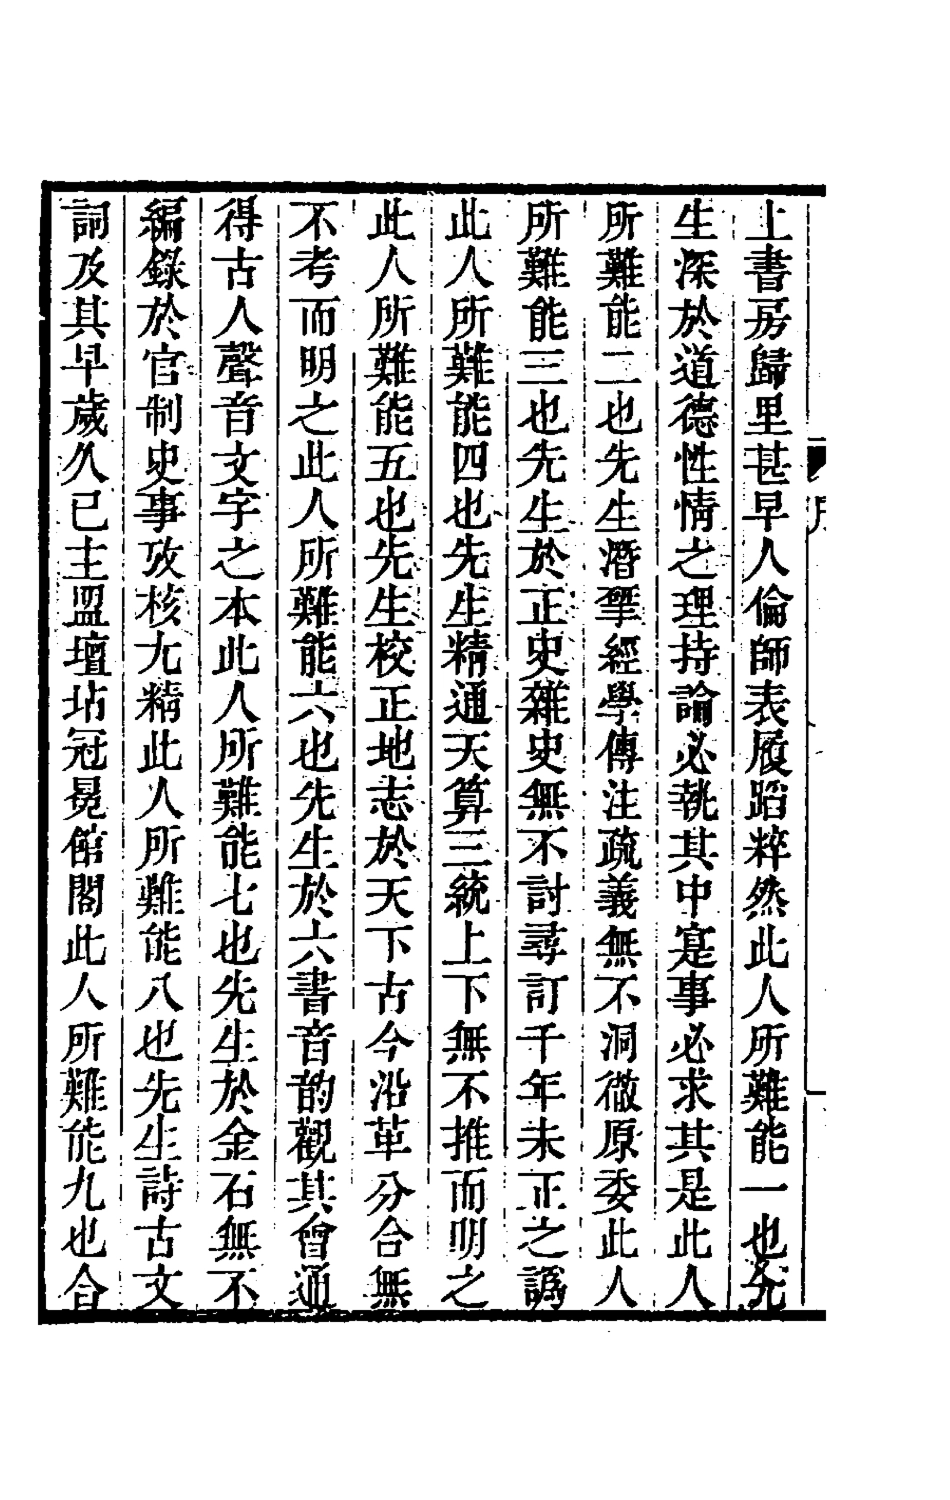 上書房歸里甚早人倫師表履蹈粹然此人所難能一也先
生深於道德性情之理持論必執其中寔事必求其是此人
所難能二也先生潛揅經學傳注疏義無不洞微原委此人
所難能三也先生於正史雜史無不討尋訂千年未正之譌
此人所難能四也先生精通天算三統上下無不推而明之
此人所難能五也先生校正地志於天下古今沿革分合無
不考而明之此人所難能六也先生於六書音韵觀其會通
得古人聲音文字之本此人所難能七也先生於金石無不
編錄於官制史事攷核尤精此人所難能八也先生詩古文
詞及其早歲久已主盟壇坫冠冕館閣此人所難能九也合